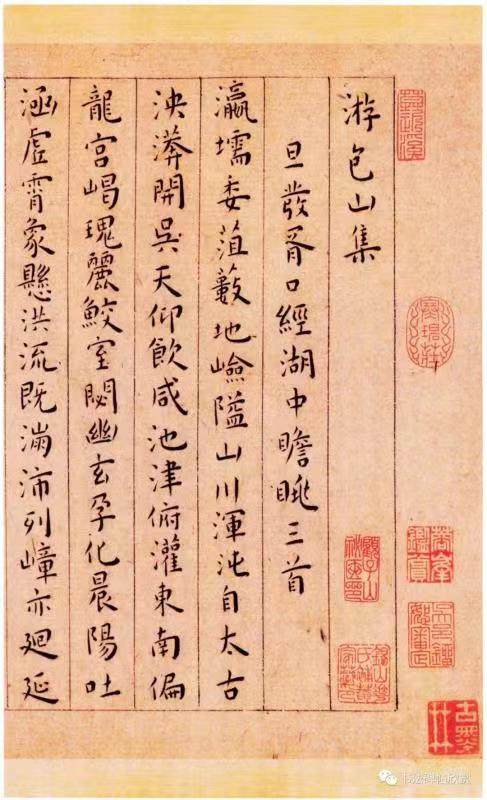 游包山集
旦發胥口經湖中瞻眺三首
瀛壖委菹藪地嶮隘山川渾沌自太古
泱漭開吳天仰飲咸池津俯灌東南偏
龍宮嵑瑰麗鮫室閟幽玄孕化晨陽吐
涵虛霄象懸洪流既沛列嶂亦廻延